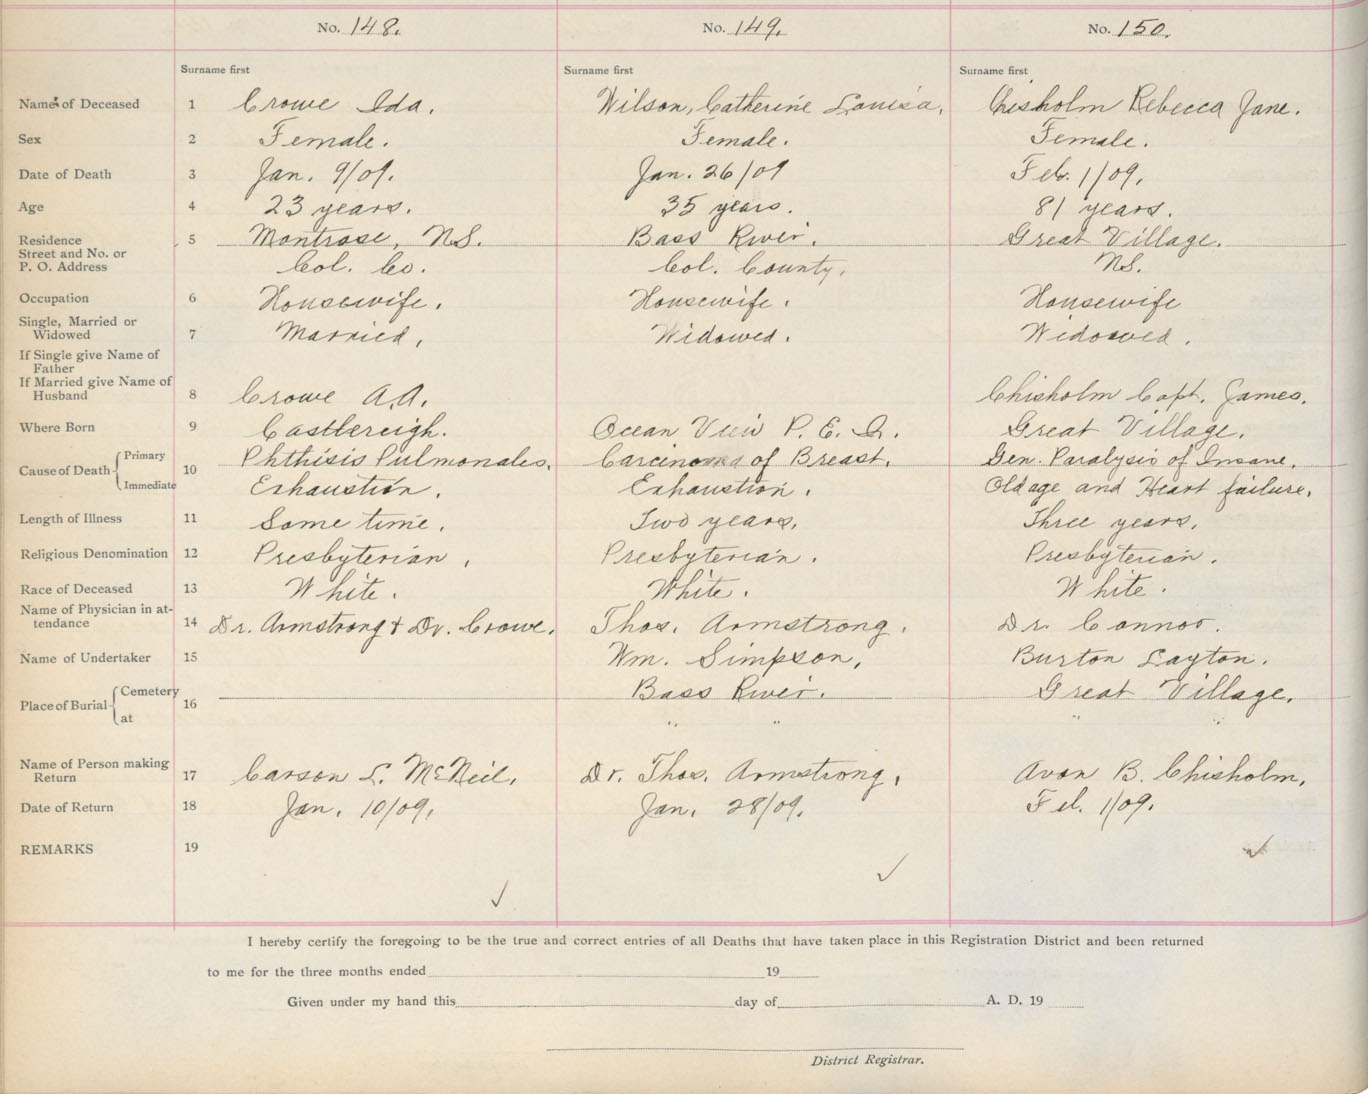 No. 148. No. 149. No. 150.
Surname first Surname first Surname first
Name of Deceased 1 Crowe Ida. Wilson, Catherine Louisa, Chisholm Rebecca Jane.
Sex 2 Female. Female. Female.
Date of Death 3 Jan. 9/09. Jan. 26/09 Feb. 1/09.
Age 4 23 years. 35 years. 81 years.
Residence 5 Montrose, N.S. Bass River. Great Village.
Street and No. or
P. O. Address Col. Co. Col. County. N.S.
Occupation 6 Housewife. Housewife. Housewife
Single, Married or
Widowed 7 Married, Widowed. Widowed.
If Single give Name of
Father
If Married give Name of
Husband 8 Crowe A.A. Chisholm Capt. James.
Where Born 9 Castlereigh. Ocean View P. E. I. Great Village.
Cause of Death Primary 10 Phthisis Pulmonales. Carcinoma of Breast. Gen. Paralysis of Insane.
Immediate Exhaustion. Exhaustion. Old age and Heart failure.
Length of Illness 11 Some time. Two years. Three years.
Religious Denomination 12 Presbyterian, Presbyterian. Presbyterian.
Race of Deceased 13 White. White. White.
Name of Physician in at-
tendance 14 Dr. Armstrong & Dr. Crowe. Thos. Armstrong. Dr. Connor.
Name of Undertaker 15 Wm. Simpson, Burton Layton.
Place of Burial Cemetery 16 Bass River. Great Village.
at " " " "
Name of Person making
Return 17 Carson L. McNeil, Dr. Thos. Armstrong, Avon B. Chisholm,
Date of Return 18 Jan. 10/09, Jan. 28/09. Feb. 1/09.
REMARKS 19
I hereby certify the foregoing to be the true and correct entries of all Deaths that have taken place in this Registration District and been returned
to me for the three months ended 19
Given under my hand this day of A. D. 19
District Registrar.